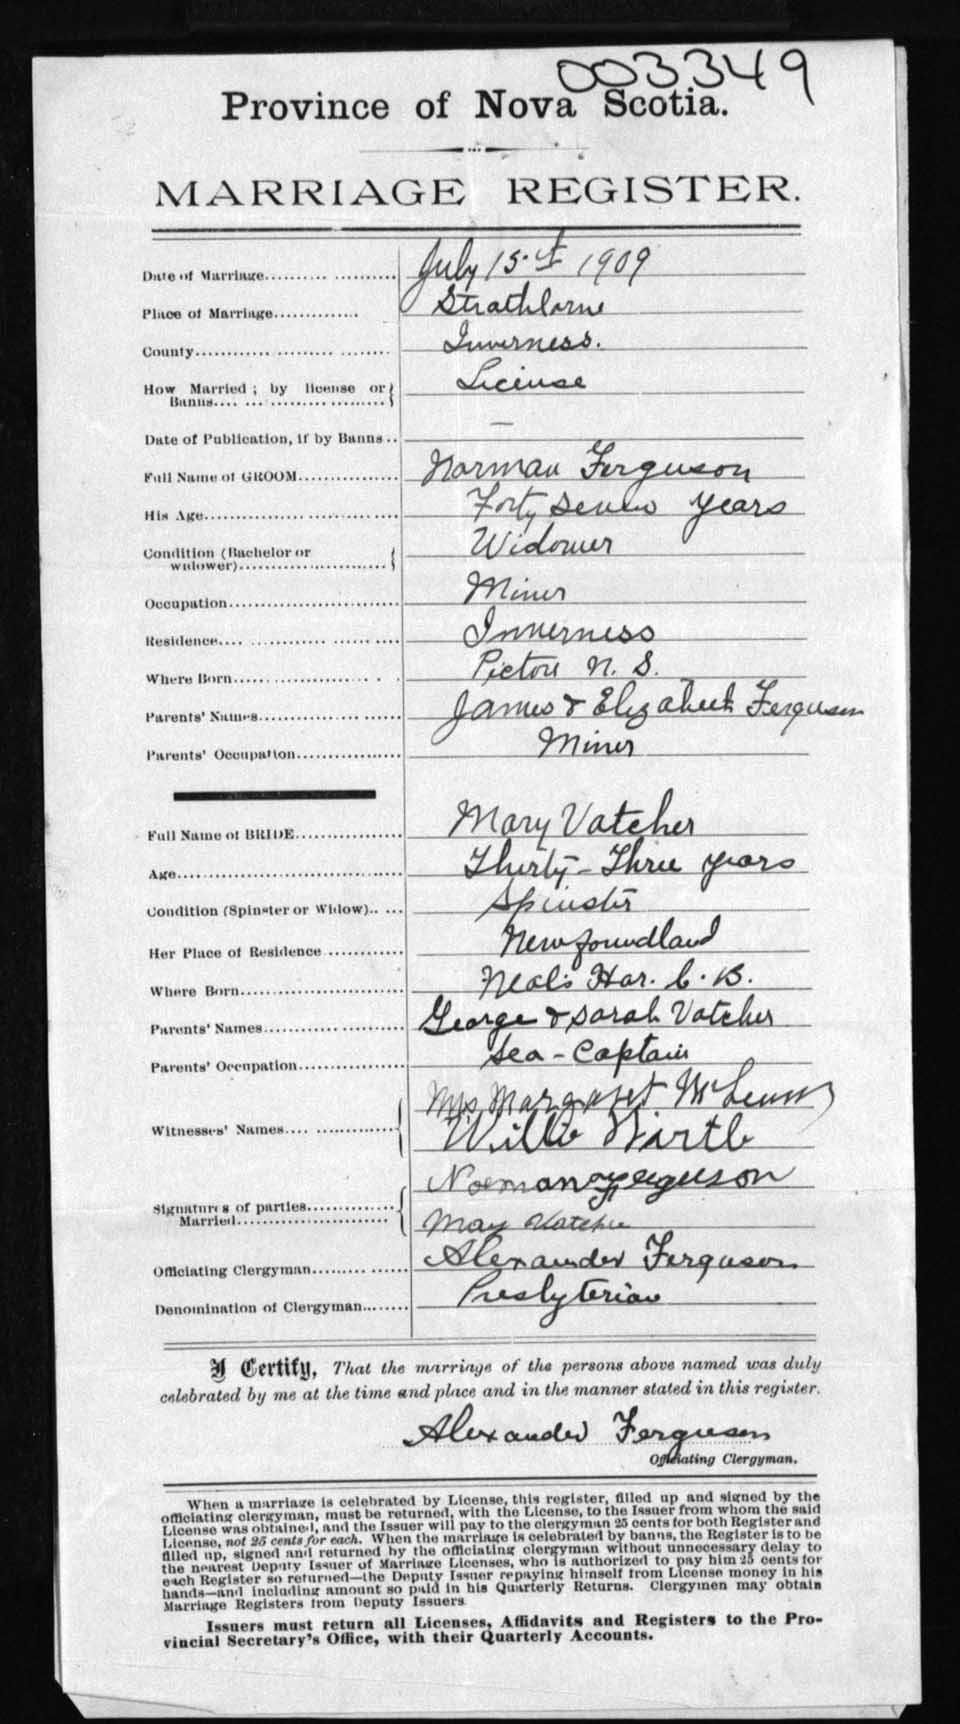 003349
Province of Nova Scotia.
MARRIAGE REGISTER.
Date of Marriage.......... July 15th 1909
Place of Marriage.......... Strathlorne
County.......... Inverness.
How Married ; by license or Banns.......... License
Date of Publication, if by Banns.. —
Full Name of GROOM.......... Norman Ferguson
His Age.......... Forty Seven Years
Condition (Bachelor or widower).......... Widower
Occupation.......... Miner
Residence.......... Inverness
Where Born.......... Pictou N. S.
Parents' Names.......... James & Elizabeth Ferguson
Parents' Occupation.......... Miner
Full Name of BRIDE.......... Mary Vatcher
Age.......... Thirty-Three years
Condition (Spinster or Widow)..... Spinster
Her Place of Residence.......... Newfoundland
Where Born.......... Neal's Har. C. B.
Parents' Names.......... George & Sarah Vatcher
Parents' Occupation.......... Sea-Captain
Witnesses' Names.......... Mrs Margaret
Willie
Signatures of parties Married.......... Norman Ferguson
May Vatcher
Officiating Clergyman.......... Alexander Ferguson
Denomination of Clergyman.......... Presbyterian
I Certify, That the marriage of the persons above named was duly
celebrated by me at the time and place and in the manner stated in this register.
Alexander Ferguson
Officiating Clergyman.
When a marriage is celebrated by License, this register, filled up and signed by the
officiating clergyman, must be returned, with the License, to the Issuer from whom the said
License was obtained, and the Issuer will pay to the clergyman 25 cents for both Register and
License, not 25 cents for each. When the marriage is celebrated by banns, the Register is to be
filled up, signed and returned by the officiating clergyman without unnecessary delay to
the nearest Deputy Issuer of Marriage Licenses, who is authorized to pay him 25 cents for
each Register so returned—the Deputy Issuer repaying himself from License money in his
hands—and including amount so paid in his Quarterly Returns. Clergymen may obtain
Marriage Registers from Deputy Issuers
Issuers must return all Licenses, Affidavits and Registers to the Pro-
vincial Secretary's Office, with their Quarterly Accounts.